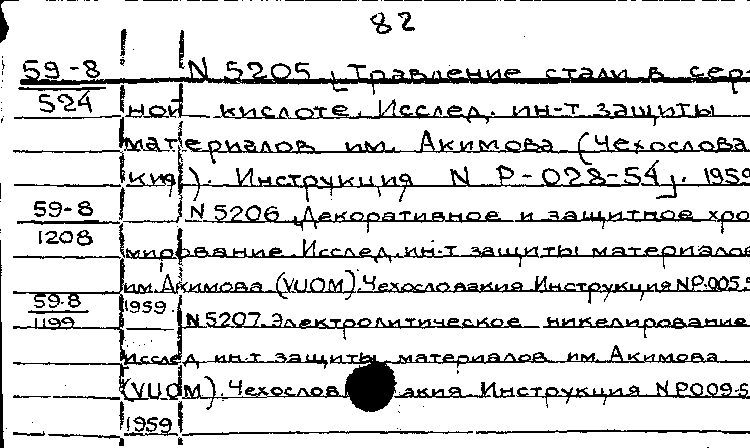 82
59-8 N 5205 Травление стали в сер
524 ной кислоте. Исслед. ин-т защиты
материалов им. Акимова (Чехослова
кия). Инструкция N P-028-54. 1959
59-8 N 5206 Декоративное и защитное хро
1208 мирование. Исслед. ин-т защиты материалов
им. Акимова (VUOM). Чехословакия Инструкция NP.005
59.8 1959 N 5207. Электролитическое никелирование
1199 Исслед ин-т защиты материалов им. Акимова
(VUOM). Чехословакия. Инструкция NP009-5
1959